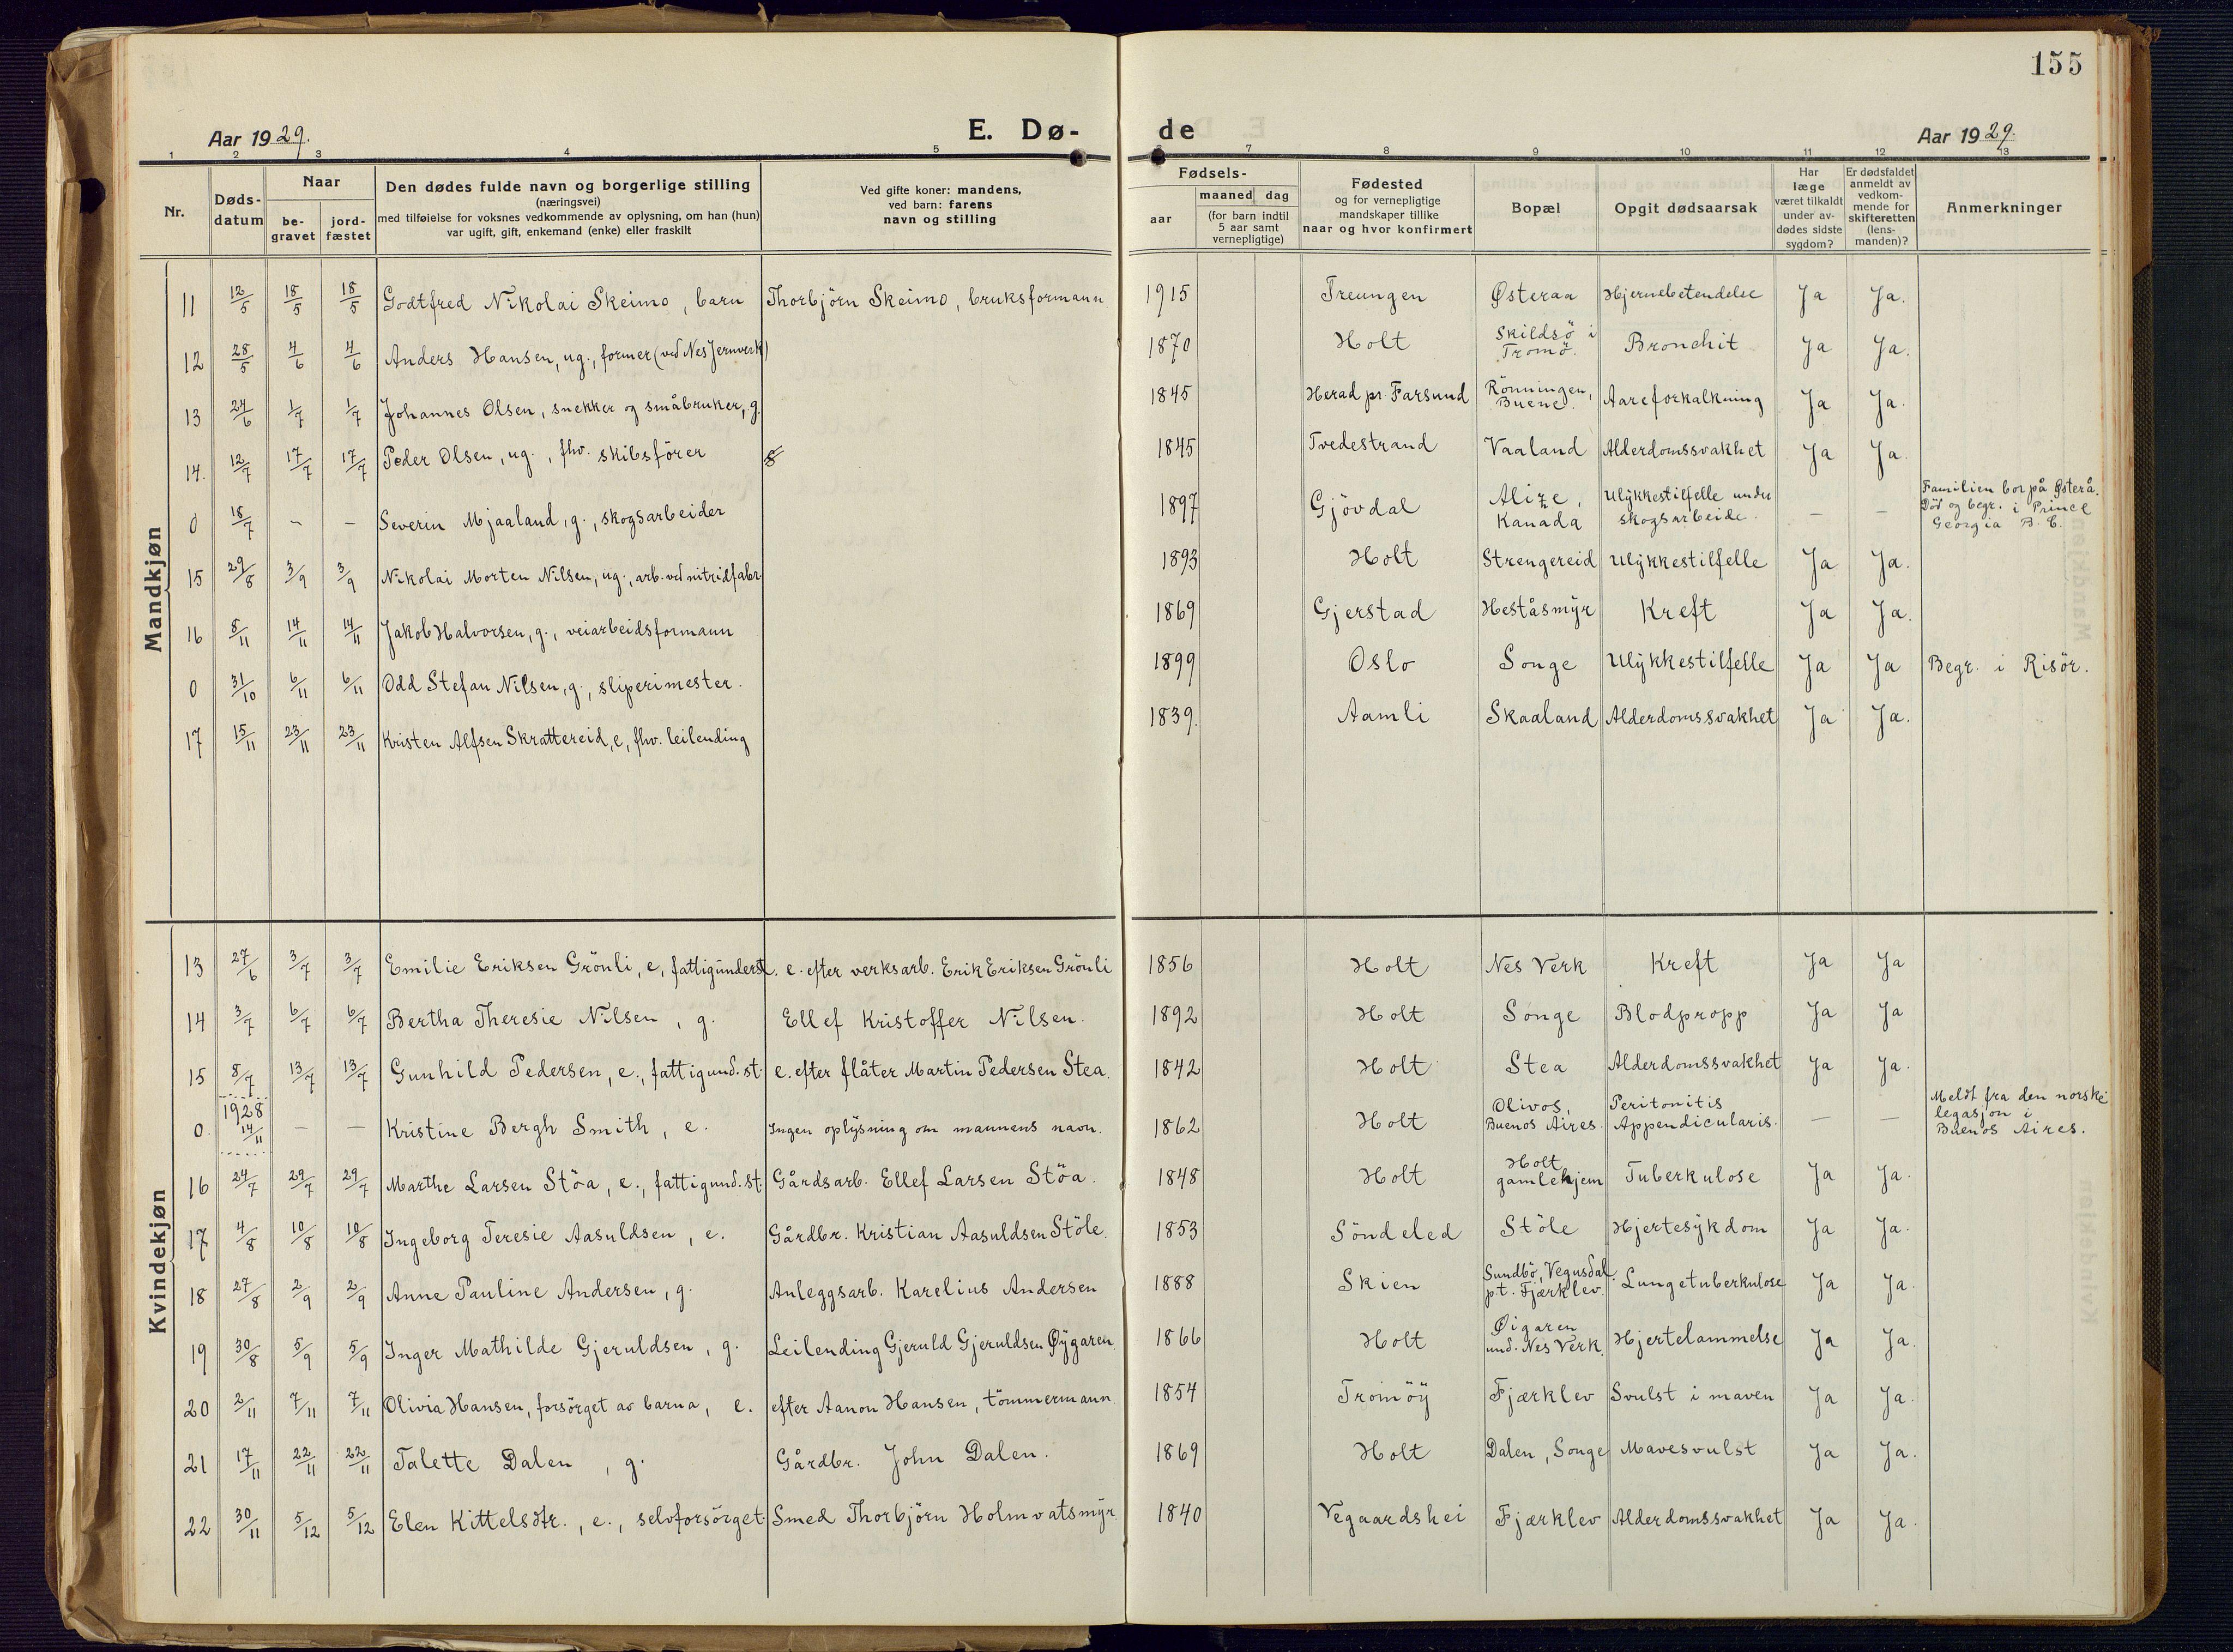 155
Aar 1929.
E. Dø-
de
Aar 1929.
1 2 3 4 5 7 8 9 10 11 12 13
Nr.
Døds-
datum
Naar
be-
gravet
jord-
fæstet
Den dødes fulde navn og borgerlige stilling
(næringsvei)
med tilføielse for voksnes vedkommende av oplysning, om han (hun)
var ugift, gift, enkemand (enke) eller fraskilt
Ved gifte koner: mandens,
ved barn: farens
navn og stilling
Fødsels-
aar
maaned dag
(for barn indtil
5 aar samt
vernepligtige)
Fødested
og for vernepligtige
mandskaper tillike
naar og hvor konfirmert
Bopæl
Opgit dødsaarsak
Har
læge
været tilkaldt
under av-
dødes sidste
sygdom?
Er dødsfaldet
anmeldt av
vedkom-
mende for
skifteretten
(lens-
manden)?
Anmerkninger
Mandkjøn
11 12/5 18/5 18/5 Godtfred Nikolai Skeimo, barn Thorbjörn Skeimo, bruksformann 1915 Treungen Østeraa Hjernebetendelse Ja Ja.
12 28/5 4/6 4/6 Anders Hansen, ug., former (ved Nes Jernverk) 1870 Holt Skildsö i Tromö. Bronchit Ja Ja.
13 24/6 1/7 1/7 Johannes Olsen, snekker og småbruker, g. 1845 Herad pr. Farsund Rönningen, Buene. Aareforkalkning Ja Ja.
14. 12/7 17/7 17/7 Peder Olsen, ug., fhv. skibsförer 1845 Tvedestrand Vaaland Alderdomssvakhet Ja Ja.
0 18/7 – – Severin Mjaaland, g., skogsarbeider 1897 Gjövdal Alize, Kanada Ulykkestilfelle under skogsarbeide. – – Familien bor på Østerå. Död og begr. i Prince Georgia B. C.
15 29/8 3/9 3/9 Nikolai Morten Nilsen, ug., arb. ved nitridfabr. 1893 Holt Strengereid Ulykkestilfelle Ja Ja.
16 8/11 14/11 14/11 Jakob Halvorsen, g., veiarbeidsformann 1869 Gjerstad Heståsmyr Kreft Ja Ja.
0 31/10 6/11 6/11 Odd Stefan Nilsen, g., sliperimester. 1899 Oslo Songe Ulykkestilfelle Ja Ja Begr. i Risör.
17 15/11 23/11 23/11 Kristen Alfsen Skrattereid, e, fhv. leilending 1839. Aamli Skaaland Alderdomssvakhet Ja Ja.
Kvindekjøn
13 27/6 3/7 3/7 Emilie Eriksen Grönli, e, fattigunderst. e. efter verksarb. Erik Eriksen Grönli 1856 Holt Nes Verk Kreft Ja Ja
14 3/7 6/7 6/7 Bertha Theresie Nilsen, g. Ellef Kristoffer Nilsen. 1892 Holt Songe Blodpropp Ja Ja
15 8/7 13/7 13/7 Gunhild Pedersen, e., fattigund.st. e. efter flåter Martin Pedersen Stea. 1842 Holt Stea Alderdomssvakhet Ja Ja.
0. 1928 14/11 – – Kristine Bergh Smith, e. Ingen oplysning om mannens navn. 1862 Holt Olivos, Buenos Aires. Peritonitis Appendicularis. – – Meldt fra den norske legasjon i Buenos Aires.
16 24/7 29/7 29/7 Marthe Larsen Stöa, e., fattigund.st. Gårdsarb. Ellef Larsen Stöa. 1848 Holt Holt gamlehjem Tuberkulose Ja Ja.
17 4/8 10/8 10/8 Ingeborg Teresie Aasuldsen, e. Gårdbr. Kristian Aasuldsen Stöle. 1853 Söndeled Stöle Hjertesykdom Ja Ja.
18 27/8 2/9 2/9 Anne Pauline Andersen, g. Anleggsarb. Karelius Andersen 1888 Skien Sundbö, Vegusdal. p.t. Fjærklev. Lungetuberkulose Ja Ja.
19 30/8 5/9 5/9 Inger Mathilde Gjeruldsen, g. Leilending Gjeruld Gjeruldsen Øygaren. 1866 Holt Øigaren und. Nes Verk. Hjertelammelse Ja Ja.
20 2/11 7/11 7/11 Olivia Hansen, forsörget av barna, e. efter Aanon Hansen, tömmermann 1854 Tromöy Fjærklev Svulst i maven Ja Ja.
21 17/11 22/11 22/11 Talette Dalen, g. Gårdbr. John Dalen. 1869 Holt Dalen, Songe Mavesvulst Ja Ja.
22 30/11 5/12 5/12 Elen Kittelsdtr., e., selvforsörget. Smed Thorbjörn Holmvatsmyr 1840 Vegaardshei Fjærklev Alderdomssvakhet Ja Ja.